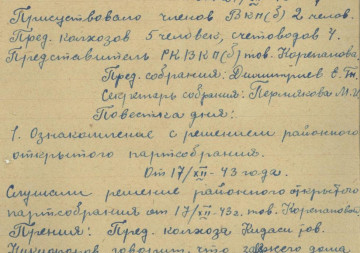 Присутствовало членов ВКП(б) 2 челов.
Пред. колхозов 5 человек, счетоводов 4.
Представитель РК ВКП(б) тов. Корепанова.
Пред. собрания: Димитриев С. Т.
Секретерь собрания: Пермякова М. И.
Повестка дня:
1. Ознакомление с решением районного
открытого партсобрания.
От 17/XII - 43 года.
Слушали решение районного открытого
партсобрания от 17/XII- 43г. тов. Корепановой
Прения: Пред. колхоза тов.
Никифоров говорит, что дома